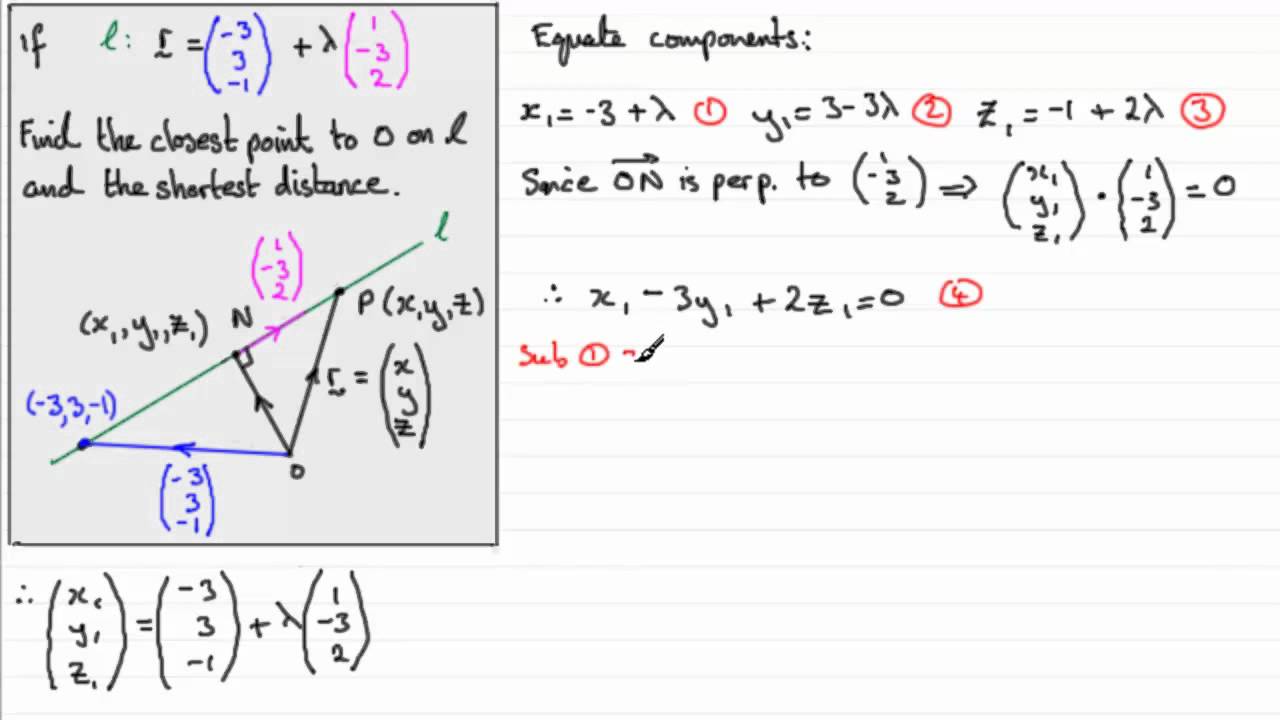 If l: r = (-3 3 -1) + λ (1 -3 2)
Find the closest point to O on l
and the shortest distance.
l
(1 -3 2)
P (x, y, z)
(x₁, y₁, z₁) N
r = (x y z)
(-3, 3, -1)
O
(-3 3 -1)
∴ (x₁ y₁ z₁) = (-3 3 -1) + λ (1 -3 2)
Equate components:
x₁ = -3 + λ ① y₁ = 3 - 3λ ② z₁ = -1 + 2λ ③
Since ON is perp. to (1 -3 2) ⇒ (x₁ y₁ z₁) · (1 -3 2) = 0
∴ x₁ - 3y₁ + 2z₁ = 0 ④
Sub ① -